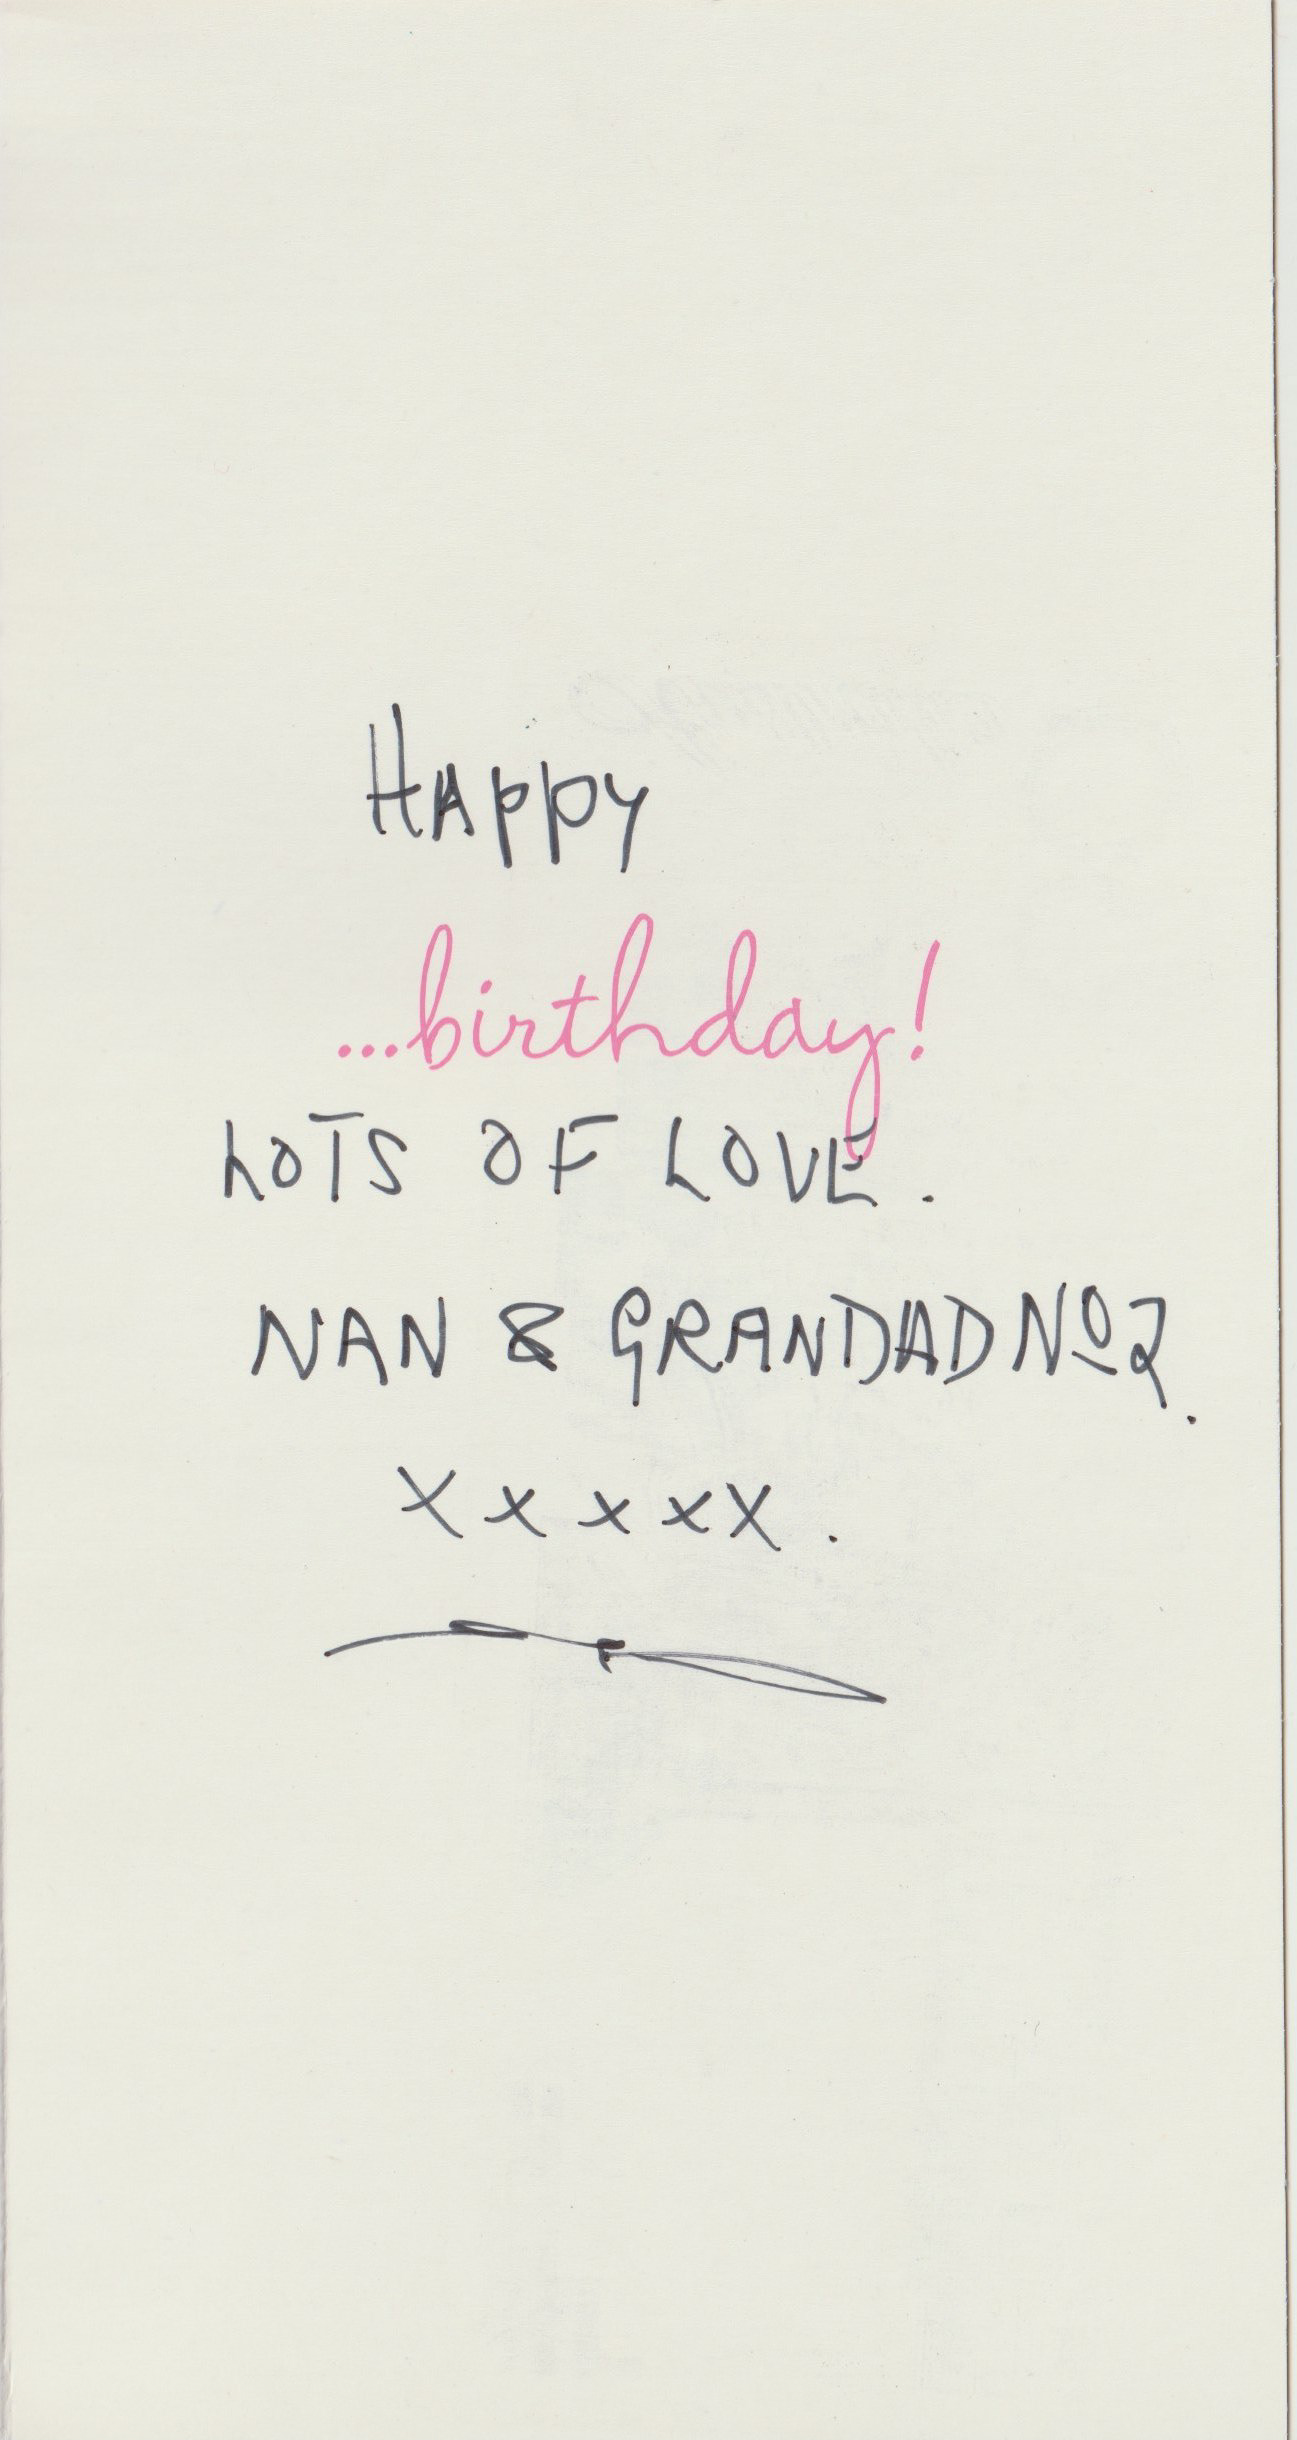 HAppy
...birthday!
LOTS OF LOVE.
NAN & GRANDAD Nº2.
x x x x x.